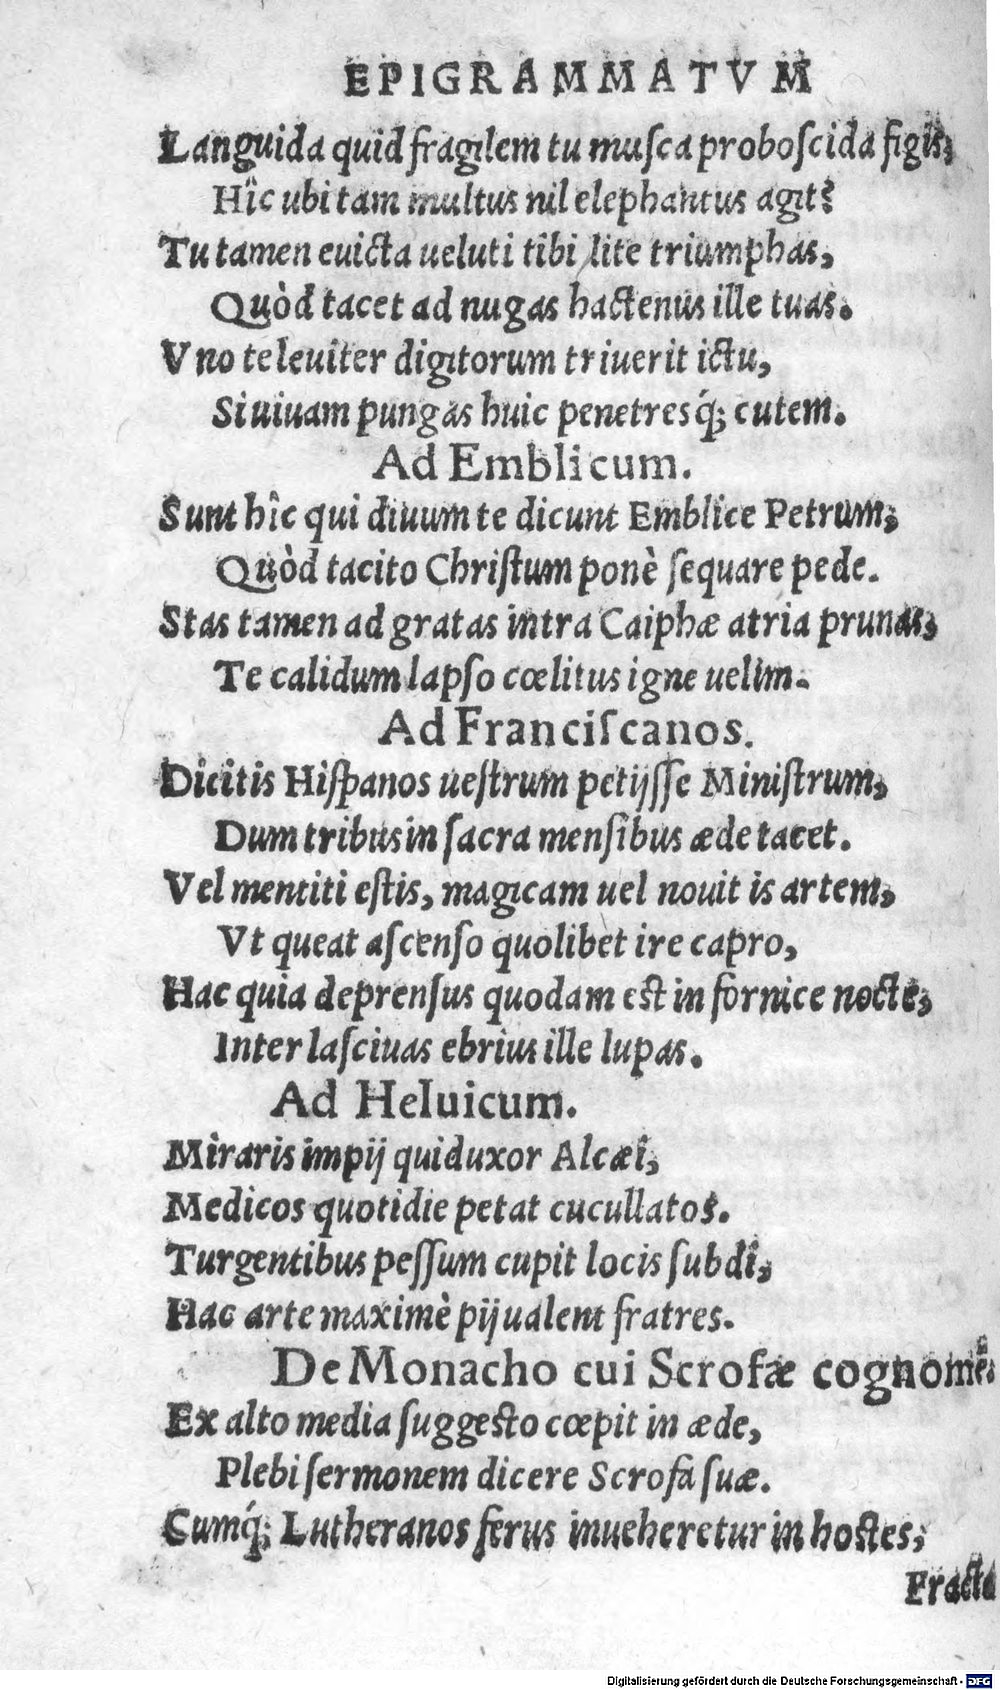 EPIGRAMMATVM
Languida quid fragilem tu muſca proboſcida figis,
Hîc ubi tam multus nil elephantus agit?
Tu tamen euicta ueluti tibi lite triumphas,
Quòd tacet ad nugas hactenus ille tuas.
Vno te leuiter digitorum triuerit ictu,
Si uiuam pungas huic penetresq́; cutem.
Ad Emblicum.
Sunt hîc qui diuum te dicunt Emblice Petrum,
Quòd tacito Chriſtum ponè ſequare pede.
Stas tamen ad gratas intra Caiphæ atria prunas,
Te calidum lapſo cœlitus igne uelim.
Ad Franciſcanos.
Dicitis Hiſpanos ueſtrum petijſſe Miniſtrum,
Dum tribus in ſacra menſibus æde tacet.
Vel mentiti eſtis, magicam uel nouit is artem,
Vt queat aſcenſo quolibet ire capro,
Hac quia deprenſus quodam eſt in fornice nocte,
Inter laſciuas ebrius ille lupas.
Ad Heluicum.
Miraris impij quid uxor Alcæi,
Medicos quotidie petat cucullatos.
Turgentibus peſſum cupit locis ſubdi,
Hac arte maximè pij ualent fratres.
De Monacho cui Scrofæ cognomẽ.
Ex alto media ſuggeſto cœpit in æde,
Plebi ſermonem dicere Scrofa ſuæ.
Cumq́; Lutheranos ferus inueheretur in hoſtes,
Fracta
Digitalisierung gefördert durch die Deutsche Forschungsgemeinschaft - DFG